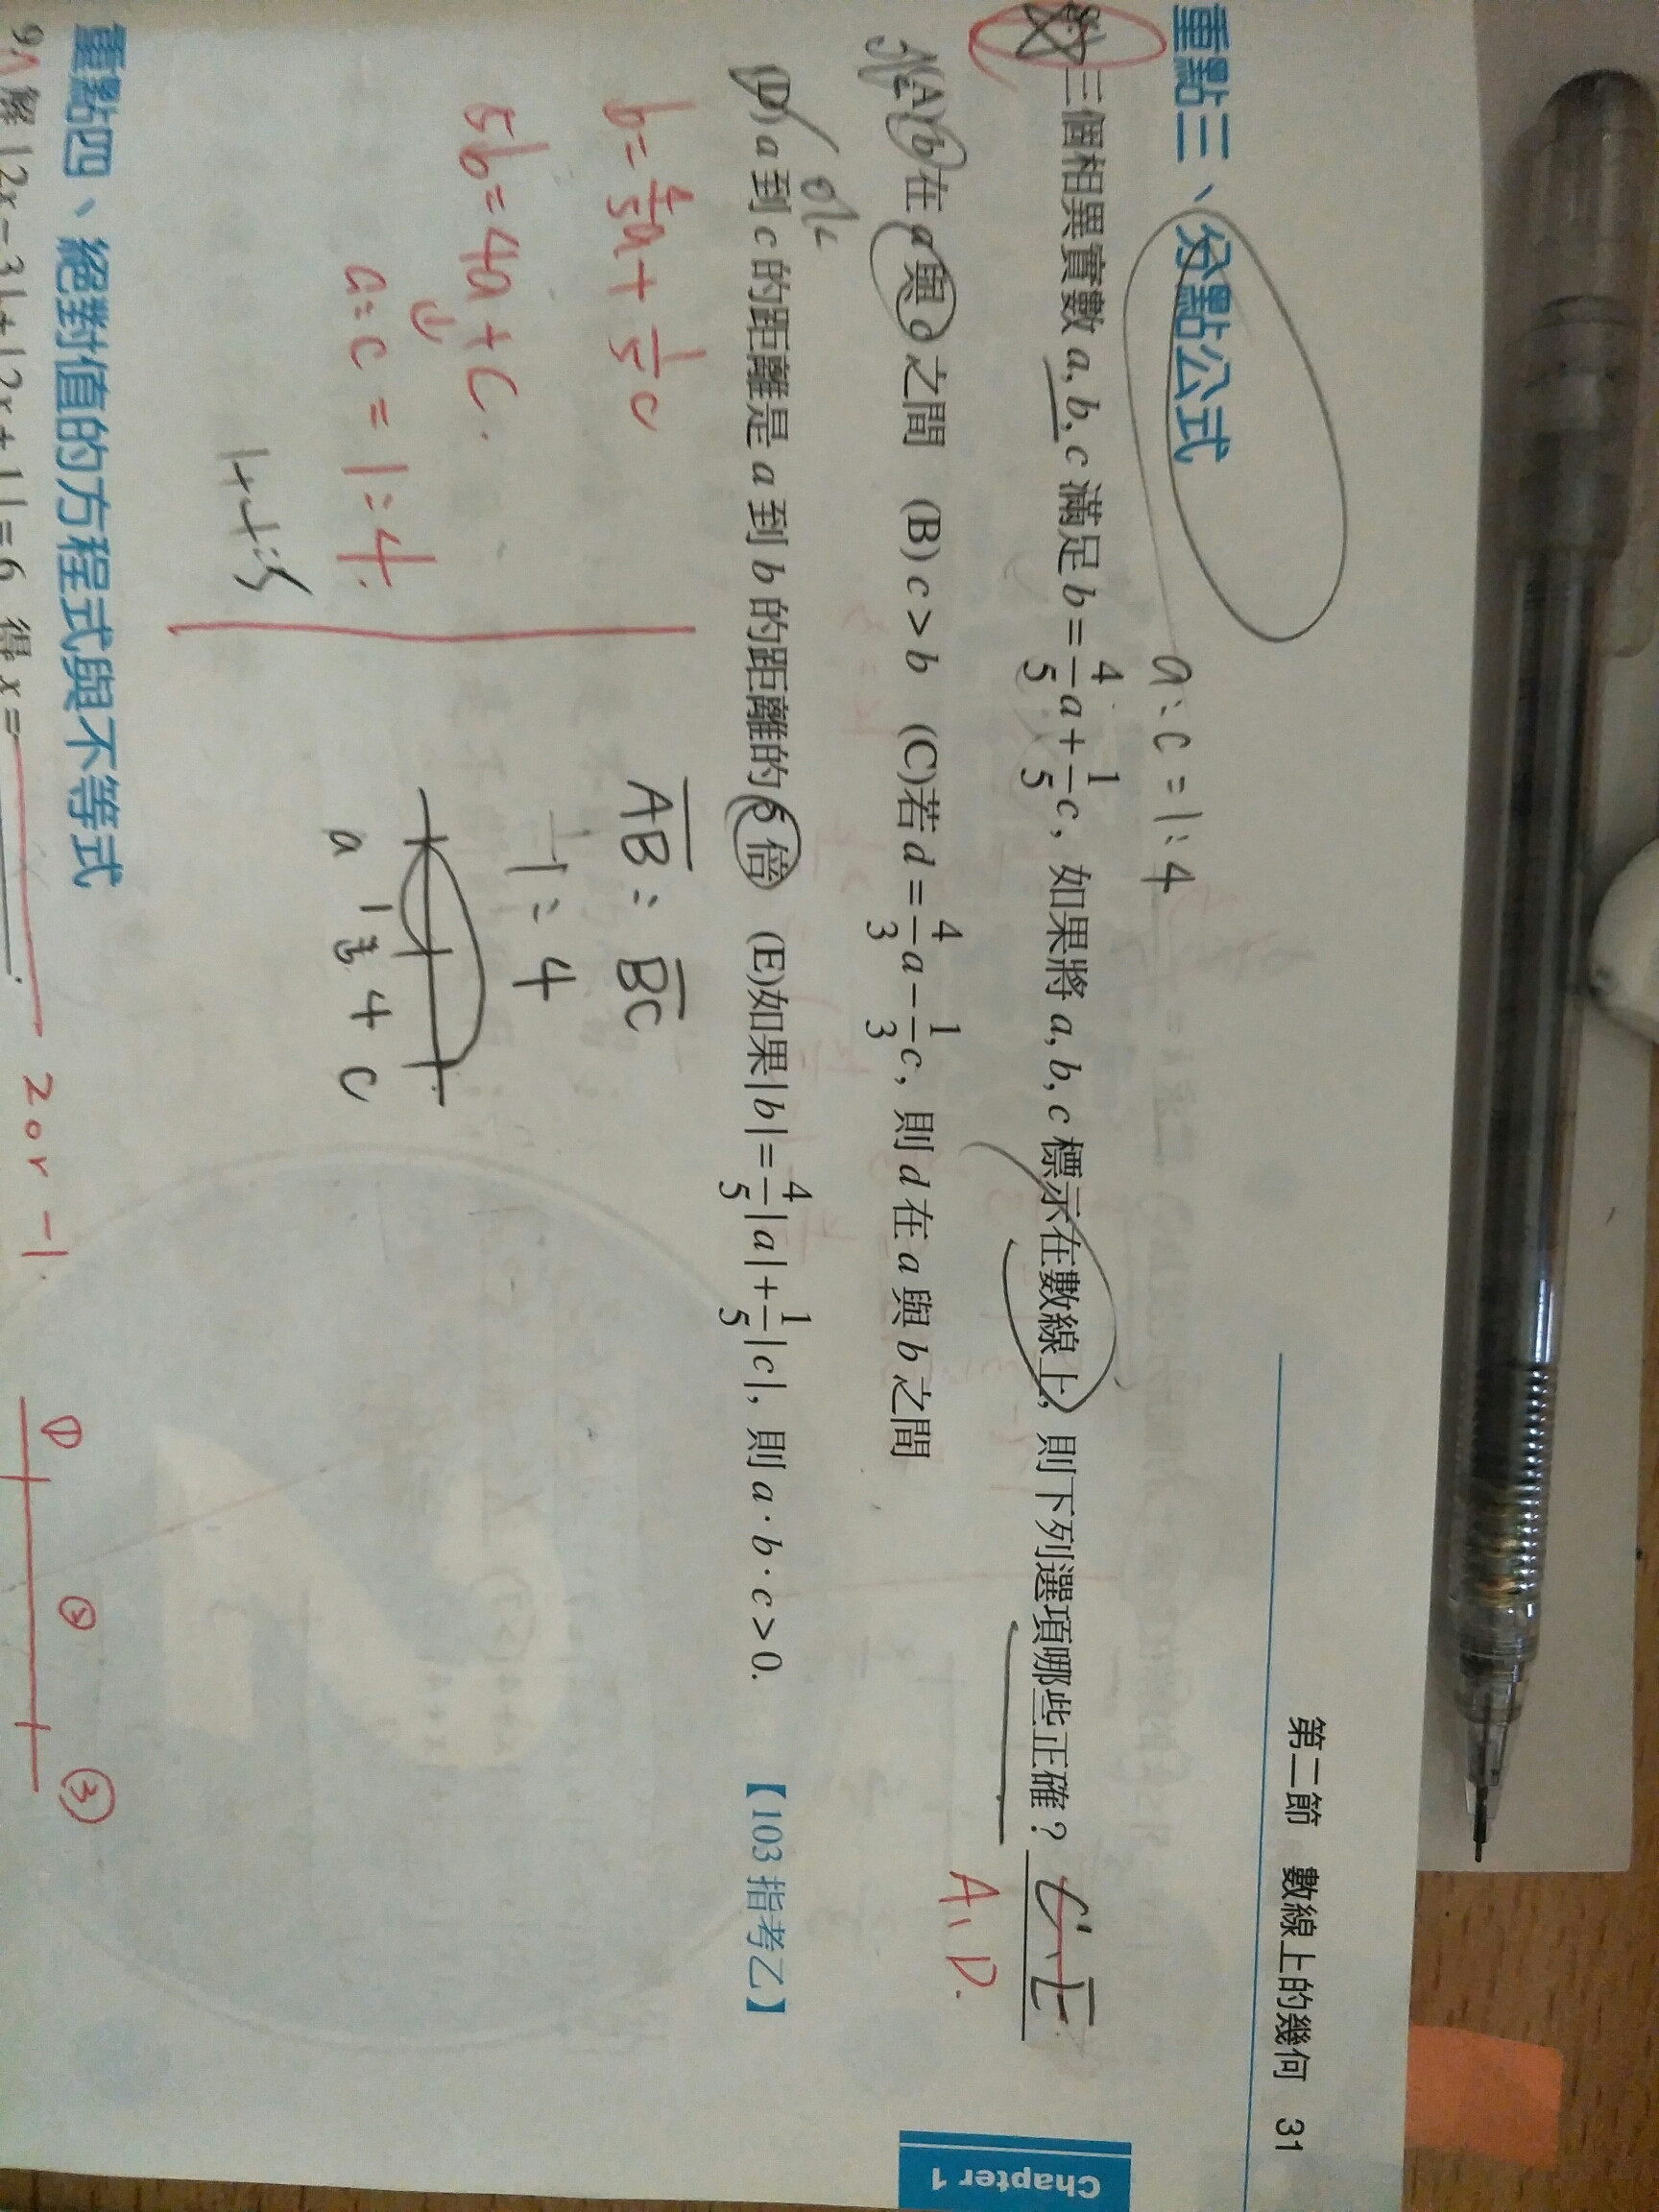 第二節 數線上的幾何 31
Chapter 1
重點三、分點公式
a:c=1:4
三個相異實數 a, b, c 滿足 b=4/5a+1/5c, 如果將 a, b, c 標示在數線上, 則下列選項哪些正確? C、E
A、D.
(A) b 在 a 與 c 之間 (B) c>b (C)若 d=4/3a-1/3c, 則 d 在 a 與 b 之間
(D) a 到 c 的距離是 a 到 b 的距離的 5 倍 (E)如果|b|=4/5|a|+1/5|c|, 則 a·b·c>0. 【103 指考乙】
b=4/5a+1/5c
5b=4a+c.
a:c=1:4.
AB:BC
1:4
a 1 b 4 c
重點四、絕對值的方程式與不等式
解 |2x-3|+|2x+1|=6 得 x= 2 or -1.
① ② ③